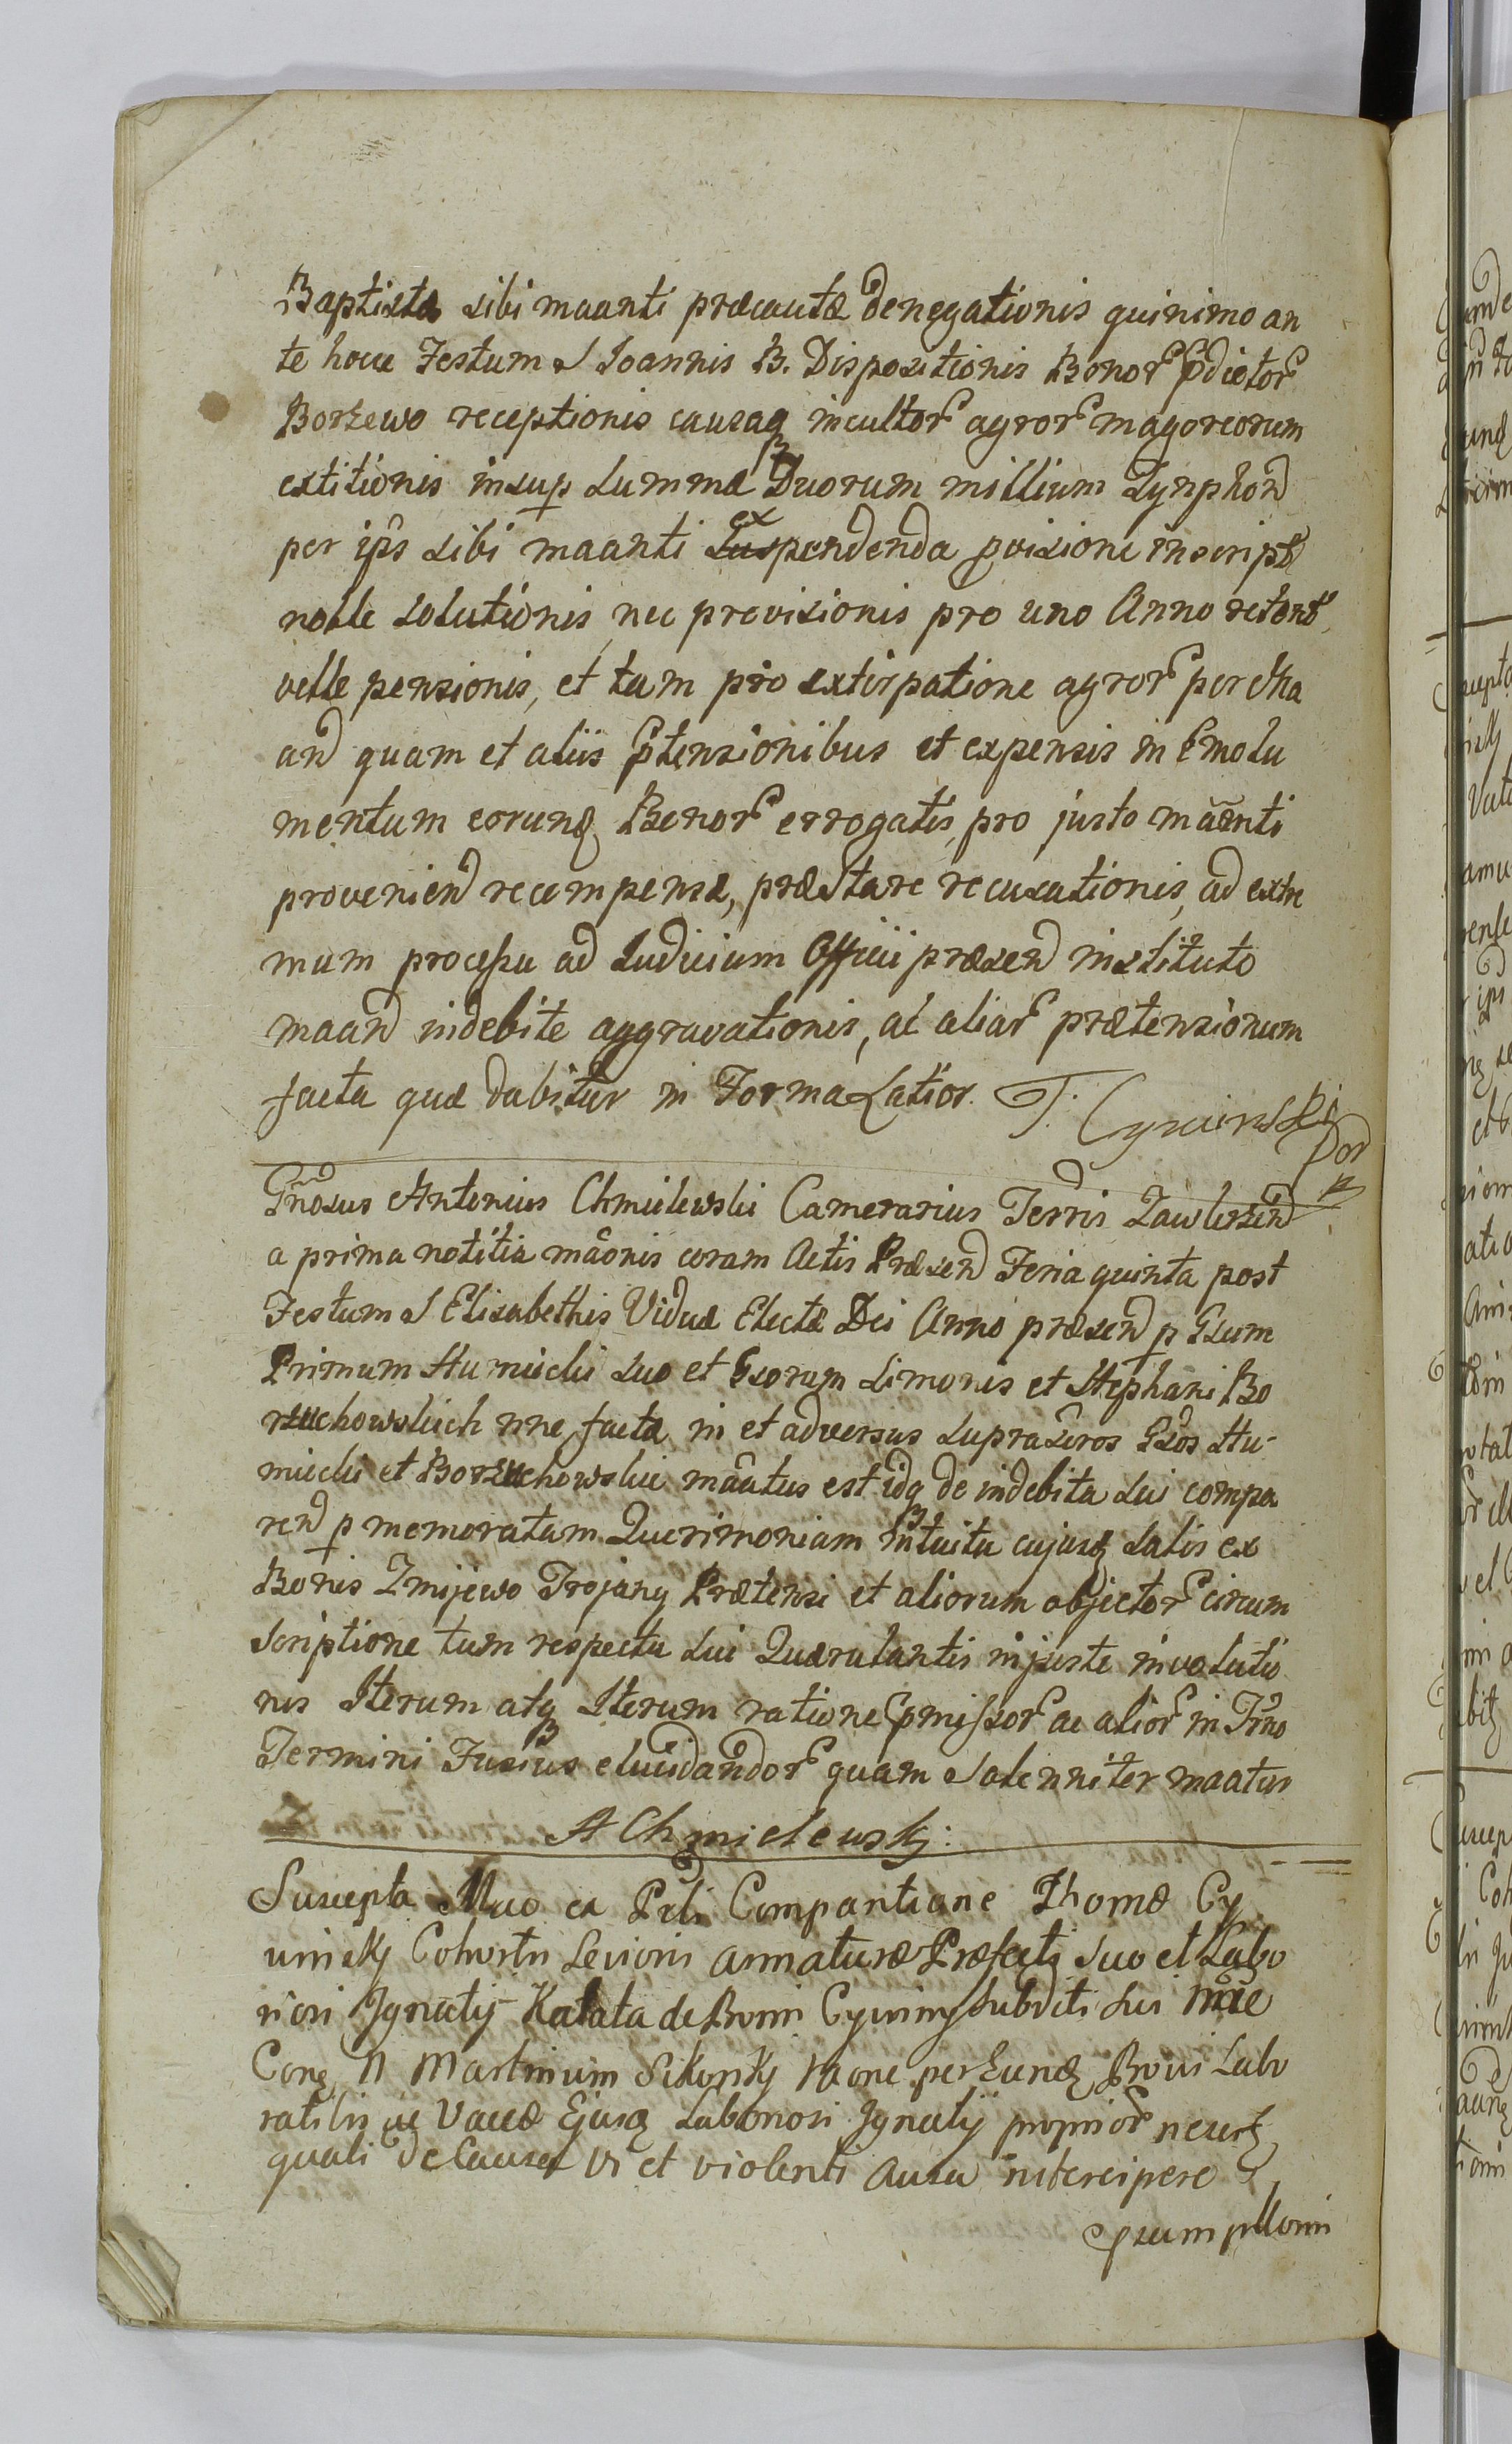 Baptistæ sibi maanti præcautæ denegationis quinimo an
te hocce Festum S Joannis B. Dispositionis Bonor pdictor
Borzewo receptionis causaq incultor agror magoreorum
extitionis insup summæ Duorum millium Tynphon
per ips sibi maanti ex Suspendenda pvisione inscript
nolle solutionis, nec provisionis pro uno Anno retent
velle pensionis, et tam pro extirpatione agror per
an quam et aliis ptensionibus et expensis in Emolu
mentum eorunq Bonor errogatis, pro justo maanti
provenien recompensa, præstare recusationis, ad extre
mum processu ad Judicium Officii præsen instituto
maan indebite aggravationis, ac aliar prætensionum
facta quæ dabitur in Forma Latior. T. Cywinski
Gnosus Antonius Chmielewski Camerarius Terris Zawkrzen
a prima notitia maonis coram Actis Præsen Feria quinta post
Festum S Elisabethis Viduæ Electæ Dei Anno præsen p Gsum
Primum Humiecki suo et Gsorum Simonis et Stephani Bo
rzuchowskich nne facta in et adversus suprascros Gsos Hu-
miecki et Borzuchowskie maatus est idq de indebita sui compa
ren p memoratam Querimoniam intuitu cujusq Salis ex
Bonis Zmijewo Trojany Prætensi et aliorum objector circum
scriptione tum respectu sui Quærulantis injuste involutio
nis Iterum atq Iterum ratione pmissor ac alior in Trno
Termini Fusius elucidandor quam Solenniter maatus
A Chmielewsky:
Suscepta Mao ex Psli Comparitione Thomæ Cy
winsky Cohortis Levioris armaturæ Præfecti suo et Labo
riosi Ignatij Katata de Bonis Cywiny subditi sui nne
Cong N Martinum Sikorsky raone per Eunq Bovis Labo
ratilis ac Vaccæ Ejusq Laboriosi Ignatij proprior nescitq
quali de Causa vi et violenti ausu intercipere
psumpllonis